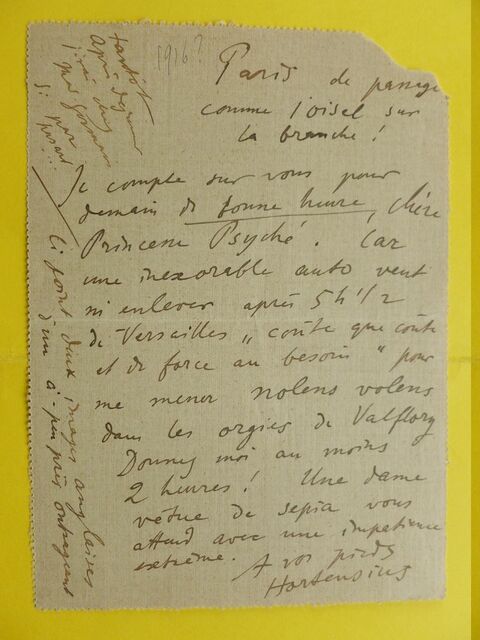 1916?
Paris de passage
comme l'oisel sur
la branche !
Je compte sur vous pour
demain de bonne heure, chère
Princesse Psyché. Car
une inexorable auto vient
m'enlever après 5h 1/2
de Versailles „ coûte que coûte
et de force au besoin " pour
me mener nolens volens
dans les orgies de Valflory
Donnez moi au moins
2 heures ! Une dame
vêtue de sepia vous
attend avec une impatience
extrême. A vos pieds
Hortensius
tantôt
Après
j'irai
Si par
Ci joint deux images anglaises
d'un à-peu près outrageant